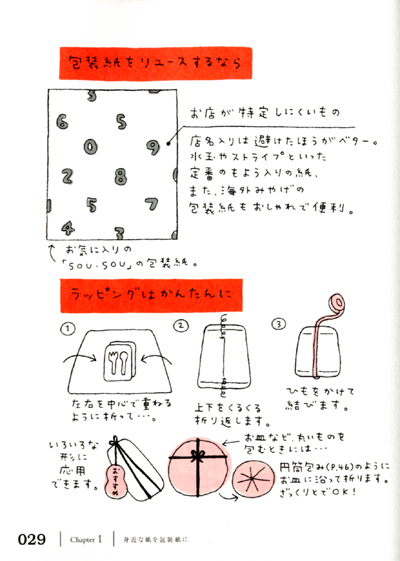 包装紙をリユースするなら
お店が特定しにくいもの
店名入りは避けたほうがベター。
水玉やストライプといった
定番のもよう入りの紙、
また、海外みやげの
包装紙もおしゃれで便利。
3
5
6 5
0 9
2 8
5 7
4 3
お気に入りの
「SOU・SOU」の包装紙。
ラッピングはかんたんに
①
左右を中心で重ねる
ように折って…。
②
上下をくるくる
折り返します。
③
ひもをかけて
結びます。
いろいろな
形に
応用
できます。
おすすめ
お皿など、丸いものを
包むときには…
円筒包み(P.46)のように
お皿に沿って折ります。
ざっくりとでOK!
029 Chapter 1 身近な紙を包装紙に